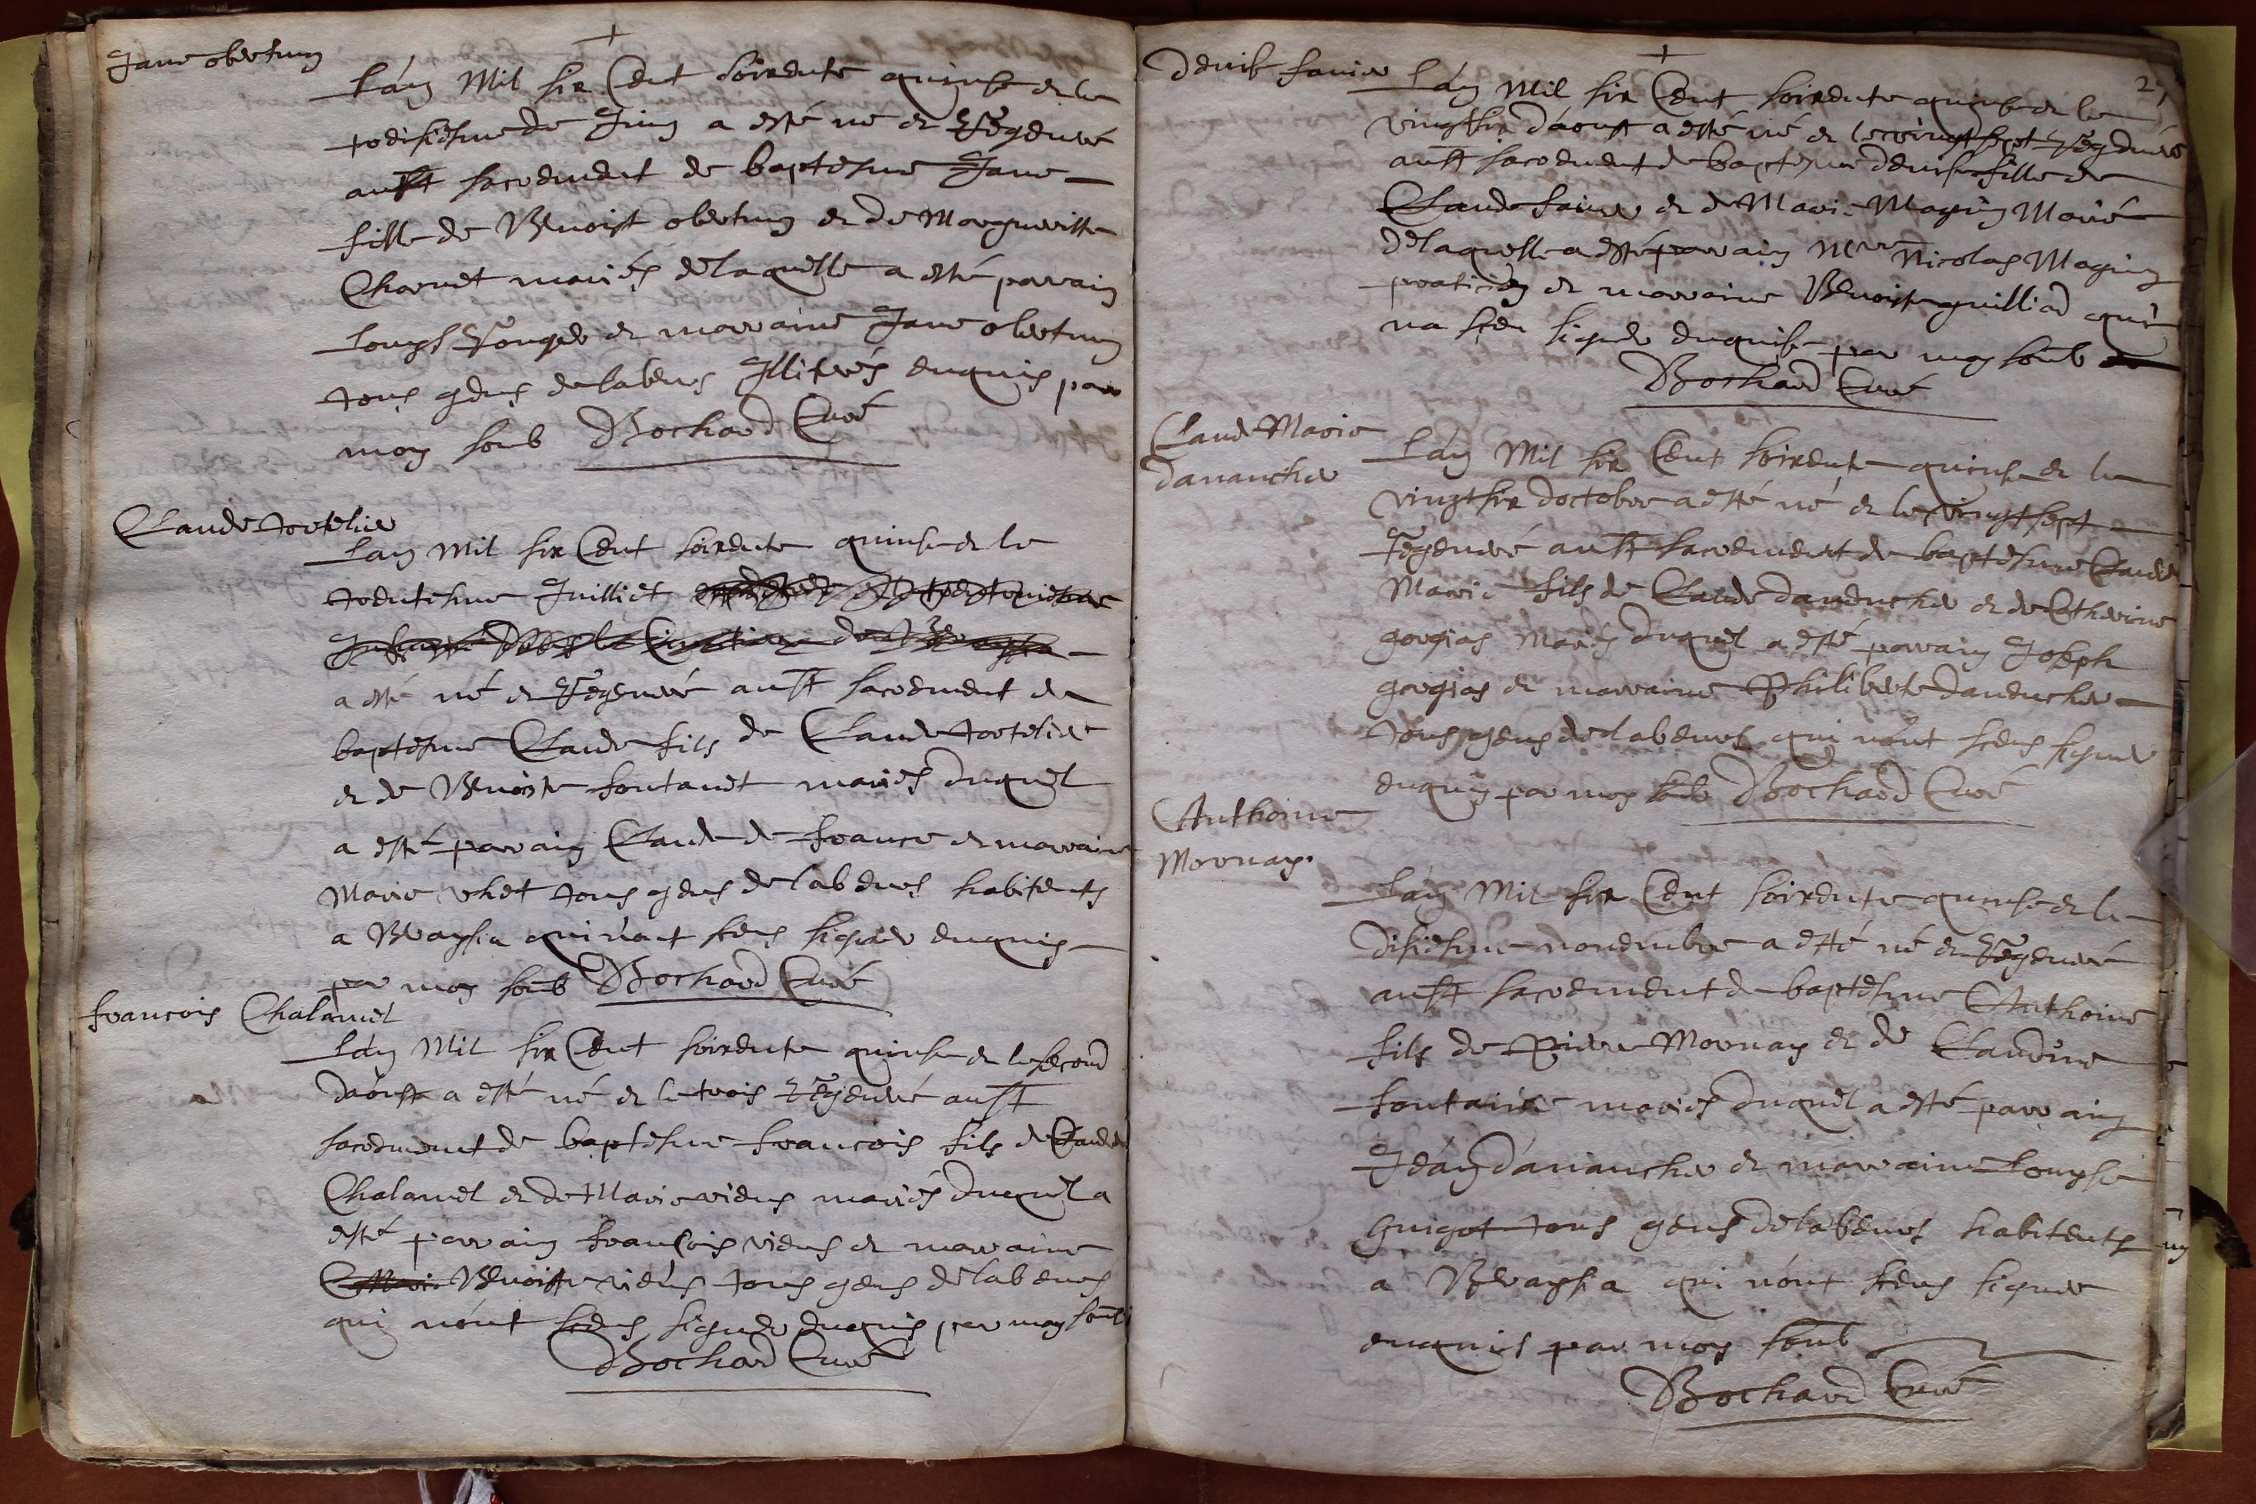 Jane obertung
+
Lán Mil six Cent soixente quinse et le
tresiesme de Jung a esté né et Regenré
aust sacrement de baptesme Jane
fille de Benoist obertung et de Margueritte
Charnet mariés de laquelle a esté parain
Louys Rouger et maraine Jane obertung
tous gens de labeurs Illitrés enquis par
moy soub Bochard Curé
Claude tortelier
Lan Mil six Cent soixente quinse et le
trentesme Juilliet
a esté né et Regenré aust sacrement de
baptesme Claude fils de Claude tortelier
et de Benoiste fontanet mariés duquel
a esté parain Claude de france et maraine
Marie uhet tous gens de labeurs habitents
a Breyssia qui nont sceus signer enquis
par moy soub Bochard Curé
francois Chalamel
Lán Mil six Cent soixente quinse et le second
dáoust a esté né et le trois Regenré aust
sacrement de baptesme francois fils de Claude
Chalamel et de Marie viens mariés duquel a
esté parain francois viens et maraine
Benoiste viens tous gens de labeurs
qui nónt sceus signer enquis par moy soub
Bochard Curé
27
Denise favier
+
Lán Mil six Cent soixente quinse et le
vingtsix dáoust a esté né et le vingtsept Regenré
aust sacrement de baptesme denise fille de
Claude favier et de Marie Magnin Mariés
de laquelle a esté parain Mre Nicolas Magnin
praticien et maraine Benoiste guilliod qui
na sceu signer enquise par moy soub
Bochard Curé
Claude Marie
danancher
Lán Mil six Cent soixente quinse et le
vingtsix doctobre a esté né et le vingtsept
Regenré aust sacrement de baptesme Claude
Marie fils de Claude danencher et de Catherine
gorgias Mariés duquel a esté parain Joseph
gorgias et maraine Philiberte danencher
tous gens de labeurs qui nónt sceus signer
enquis par moy soub Bochard Curé
Anthoine
Mornay.
Lán Mil six Cent soixente quinse et le
disiesme novembre a esté né et Regenré
aust sacrement de baptesme Anthoine
fils de Pierre Mornay et de Claudine
fontaine mariés duquel a esté parain
Jeán dánancher et maraine Louyse
guigot tous gens de labeurs habitents
a Breyssia qui nónt sceus signer
enquis par moy soub
Bochard Curé